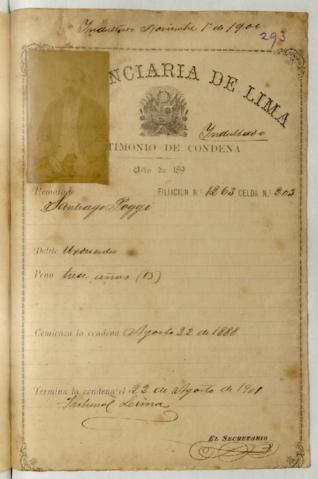 Indultado Noviembre 1º de 1900
293
NCIARIA DE LIMA
Indultado
TIMONIO DE CONDENA
Año de 189
Rematado
FILIACION N.º 1263 CELDA N.º 203
Santiago Poggi
Delito Uxoricidio
Pena trece años (13)
Comienza la condena Agosto 22 de 1888
Termina la condena el 22 de Agosto de 1901
Tribunal Lima
EL SECRETARIO